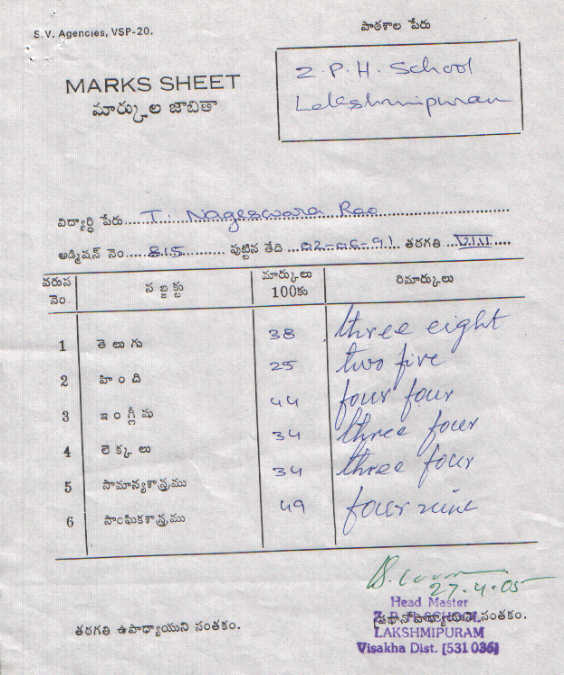 S.V. Agencies, VSP-20.
పాఠశాల పేరు
MARKS SHEET
మార్కుల జాబితా
Z.P.H. School
Lakshmipuram
విద్యార్థి పేరు T. Nageswara Rao
అడ్మిషన్ నెం. 815 పుట్టిన తేది తరగతి VIII
వరుస నెం. సబ్జక్టు మార్కులు 100కు రిమార్కులు
1 తెలుగు 38 three eight
2 హింది 25 two five
3 ఇంగ్లీషు 44 four four
4 లెక్కలు 34 three four
5 సామాన్యశాస్త్రము 34 three four
6 సాంఘికశాస్త్రము 49 four nine
27.4.05
Head Master
తరగతి ఉపాధ్యాయుని సంతకం. ప్రధానోపాధ్యాయుని సంతకం.
Z.P.H. SCHOOL
LAKSHMIPURAM
Visakha Dist. [531 036]